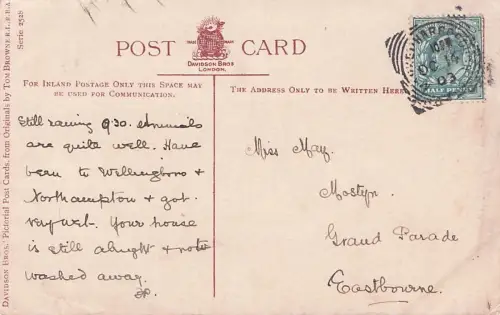 POST CARD
DAVIDSON BROS
LONDON.
FOR INLAND POSTAGE ONLY THIS SPACE MAY
BE USED FOR COMMUNICATION.
THE ADDRESS ONLY TO BE WRITTEN HERE
Still raining 9.30. Animals
are quite well. Have
been to Wellingboro &
Northampton & got
very wet. Your house
is still alright & not
washed away.
Miss May.
Mostyn.
Grand Parade
Eastbourne.
HALF PENNY
03
DAVIDSON BROS.' Pictorial Post Cards, from Originals by TOM BROWNE R.I., R.B.A.
Serie 2528